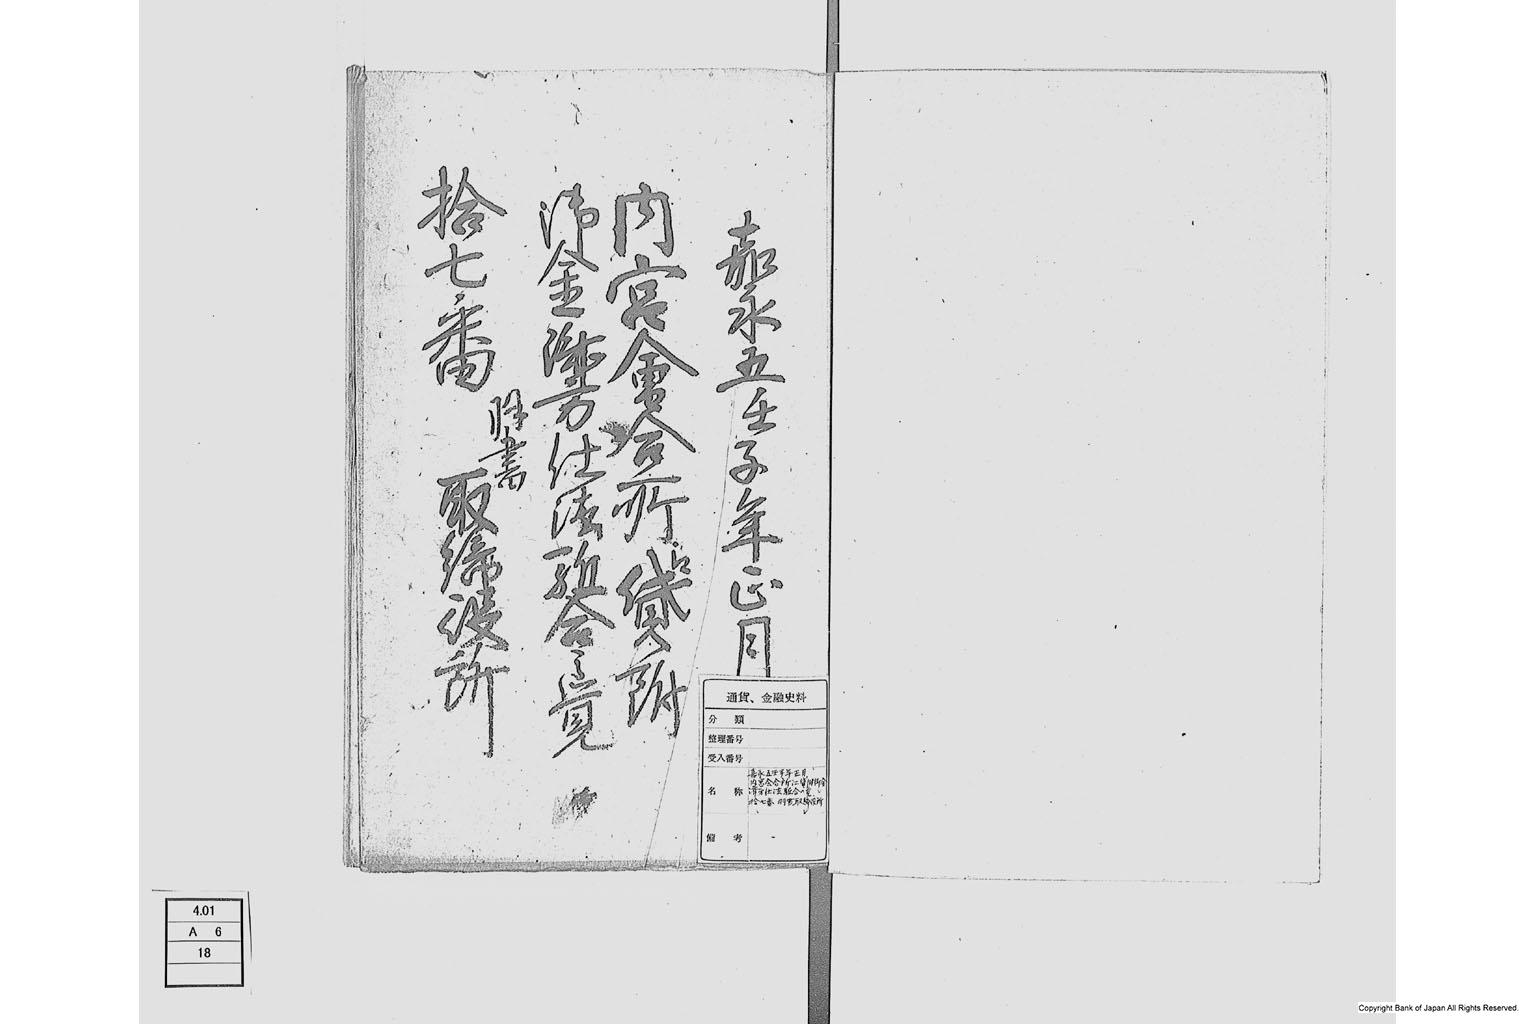 嘉永五壬子年正月
内宮會合所江貸附
御金濟方仕法融合之覚
拾七番
取締役所
通貨、金融史料
分類
整理番号
受入番号
名称
嘉永五壬子年正月
内宮会合所江貸附御金
済方仕法融合之覚
拾七番 取締役所
備考
4.01
A 6
18
Copyright Bank of Japan All Rights Reserved.